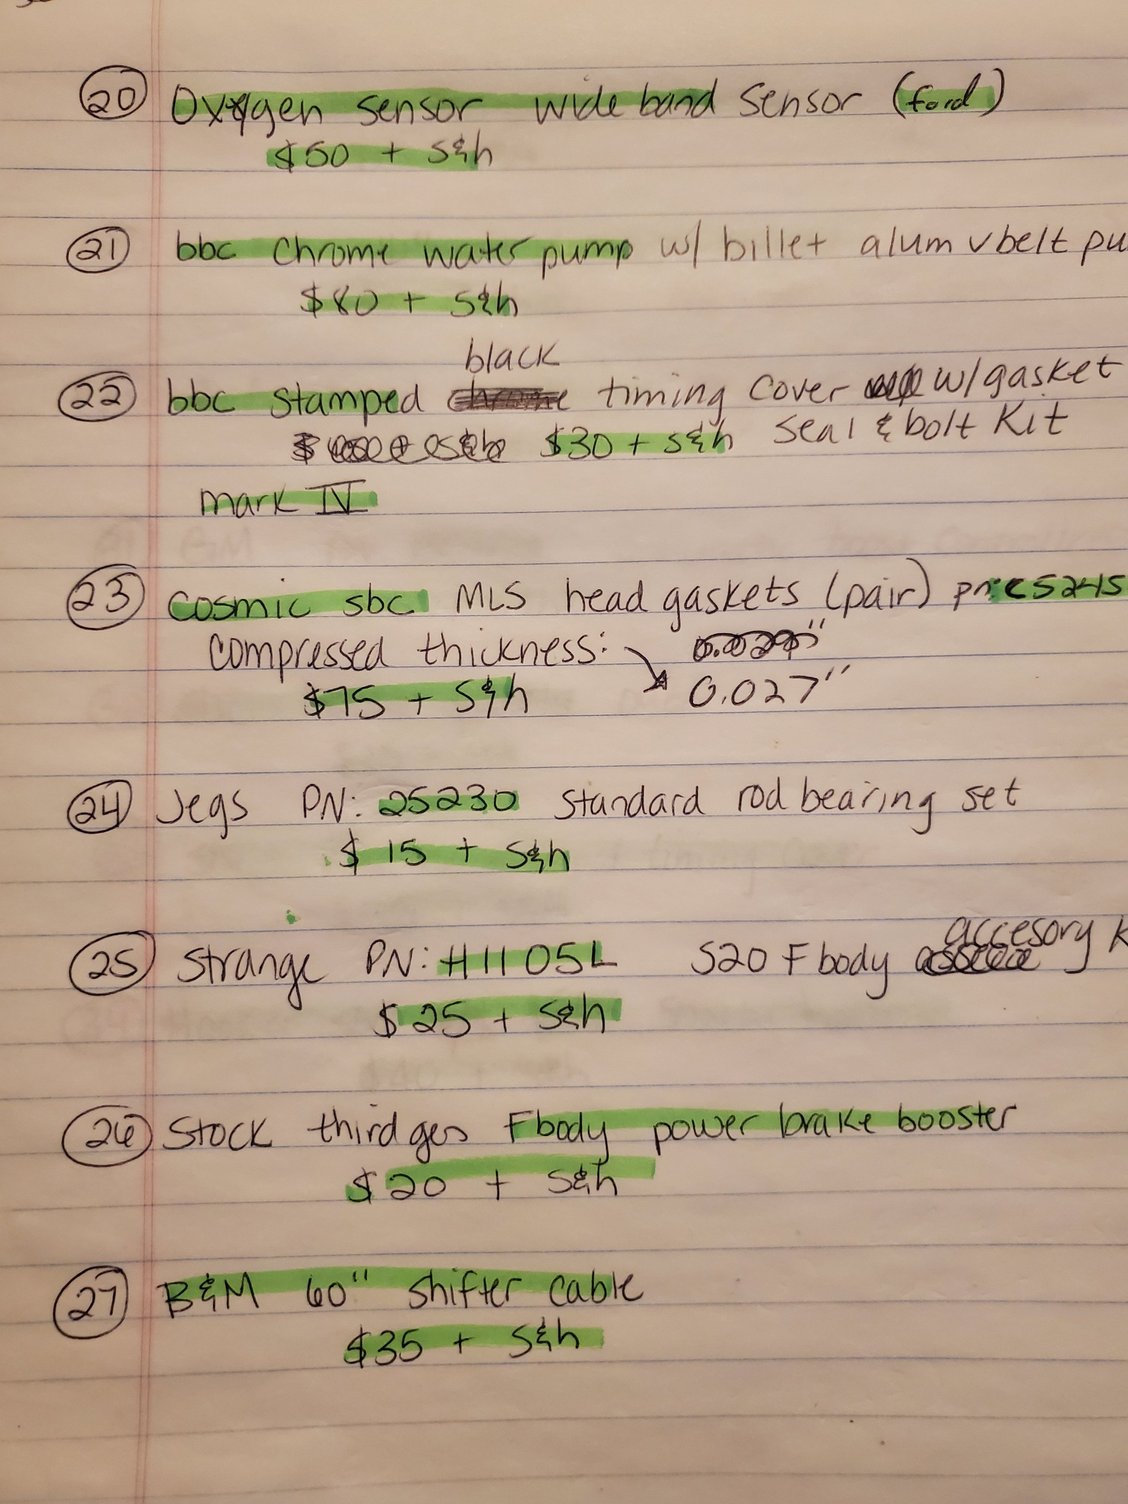 20 Oxygen sensor wide band sensor (ford)
$50 + s&h
21 bbc Chrome water pump w/ billet alum v belt pu
$80 + s&h
black
22 bbc stamped chrome timing cover w/gasket
$30 + s&h seal & bolt kit
mark IV
23 cosmic sbc MLS head gaskets (pair) pn: C5245
compressed thickness: 0.029"
$75 + s&h 0.027"
24 Jegs PN: 25230 standard rod bearing set
$15 + s&h
accesory k
25 Strange PN: H1105L S20 F body
$25 + s&h
26 Stock third gen Fbody power brake booster
$20 + s&h
27 B&M 60" shifter cable
$35 + s&h